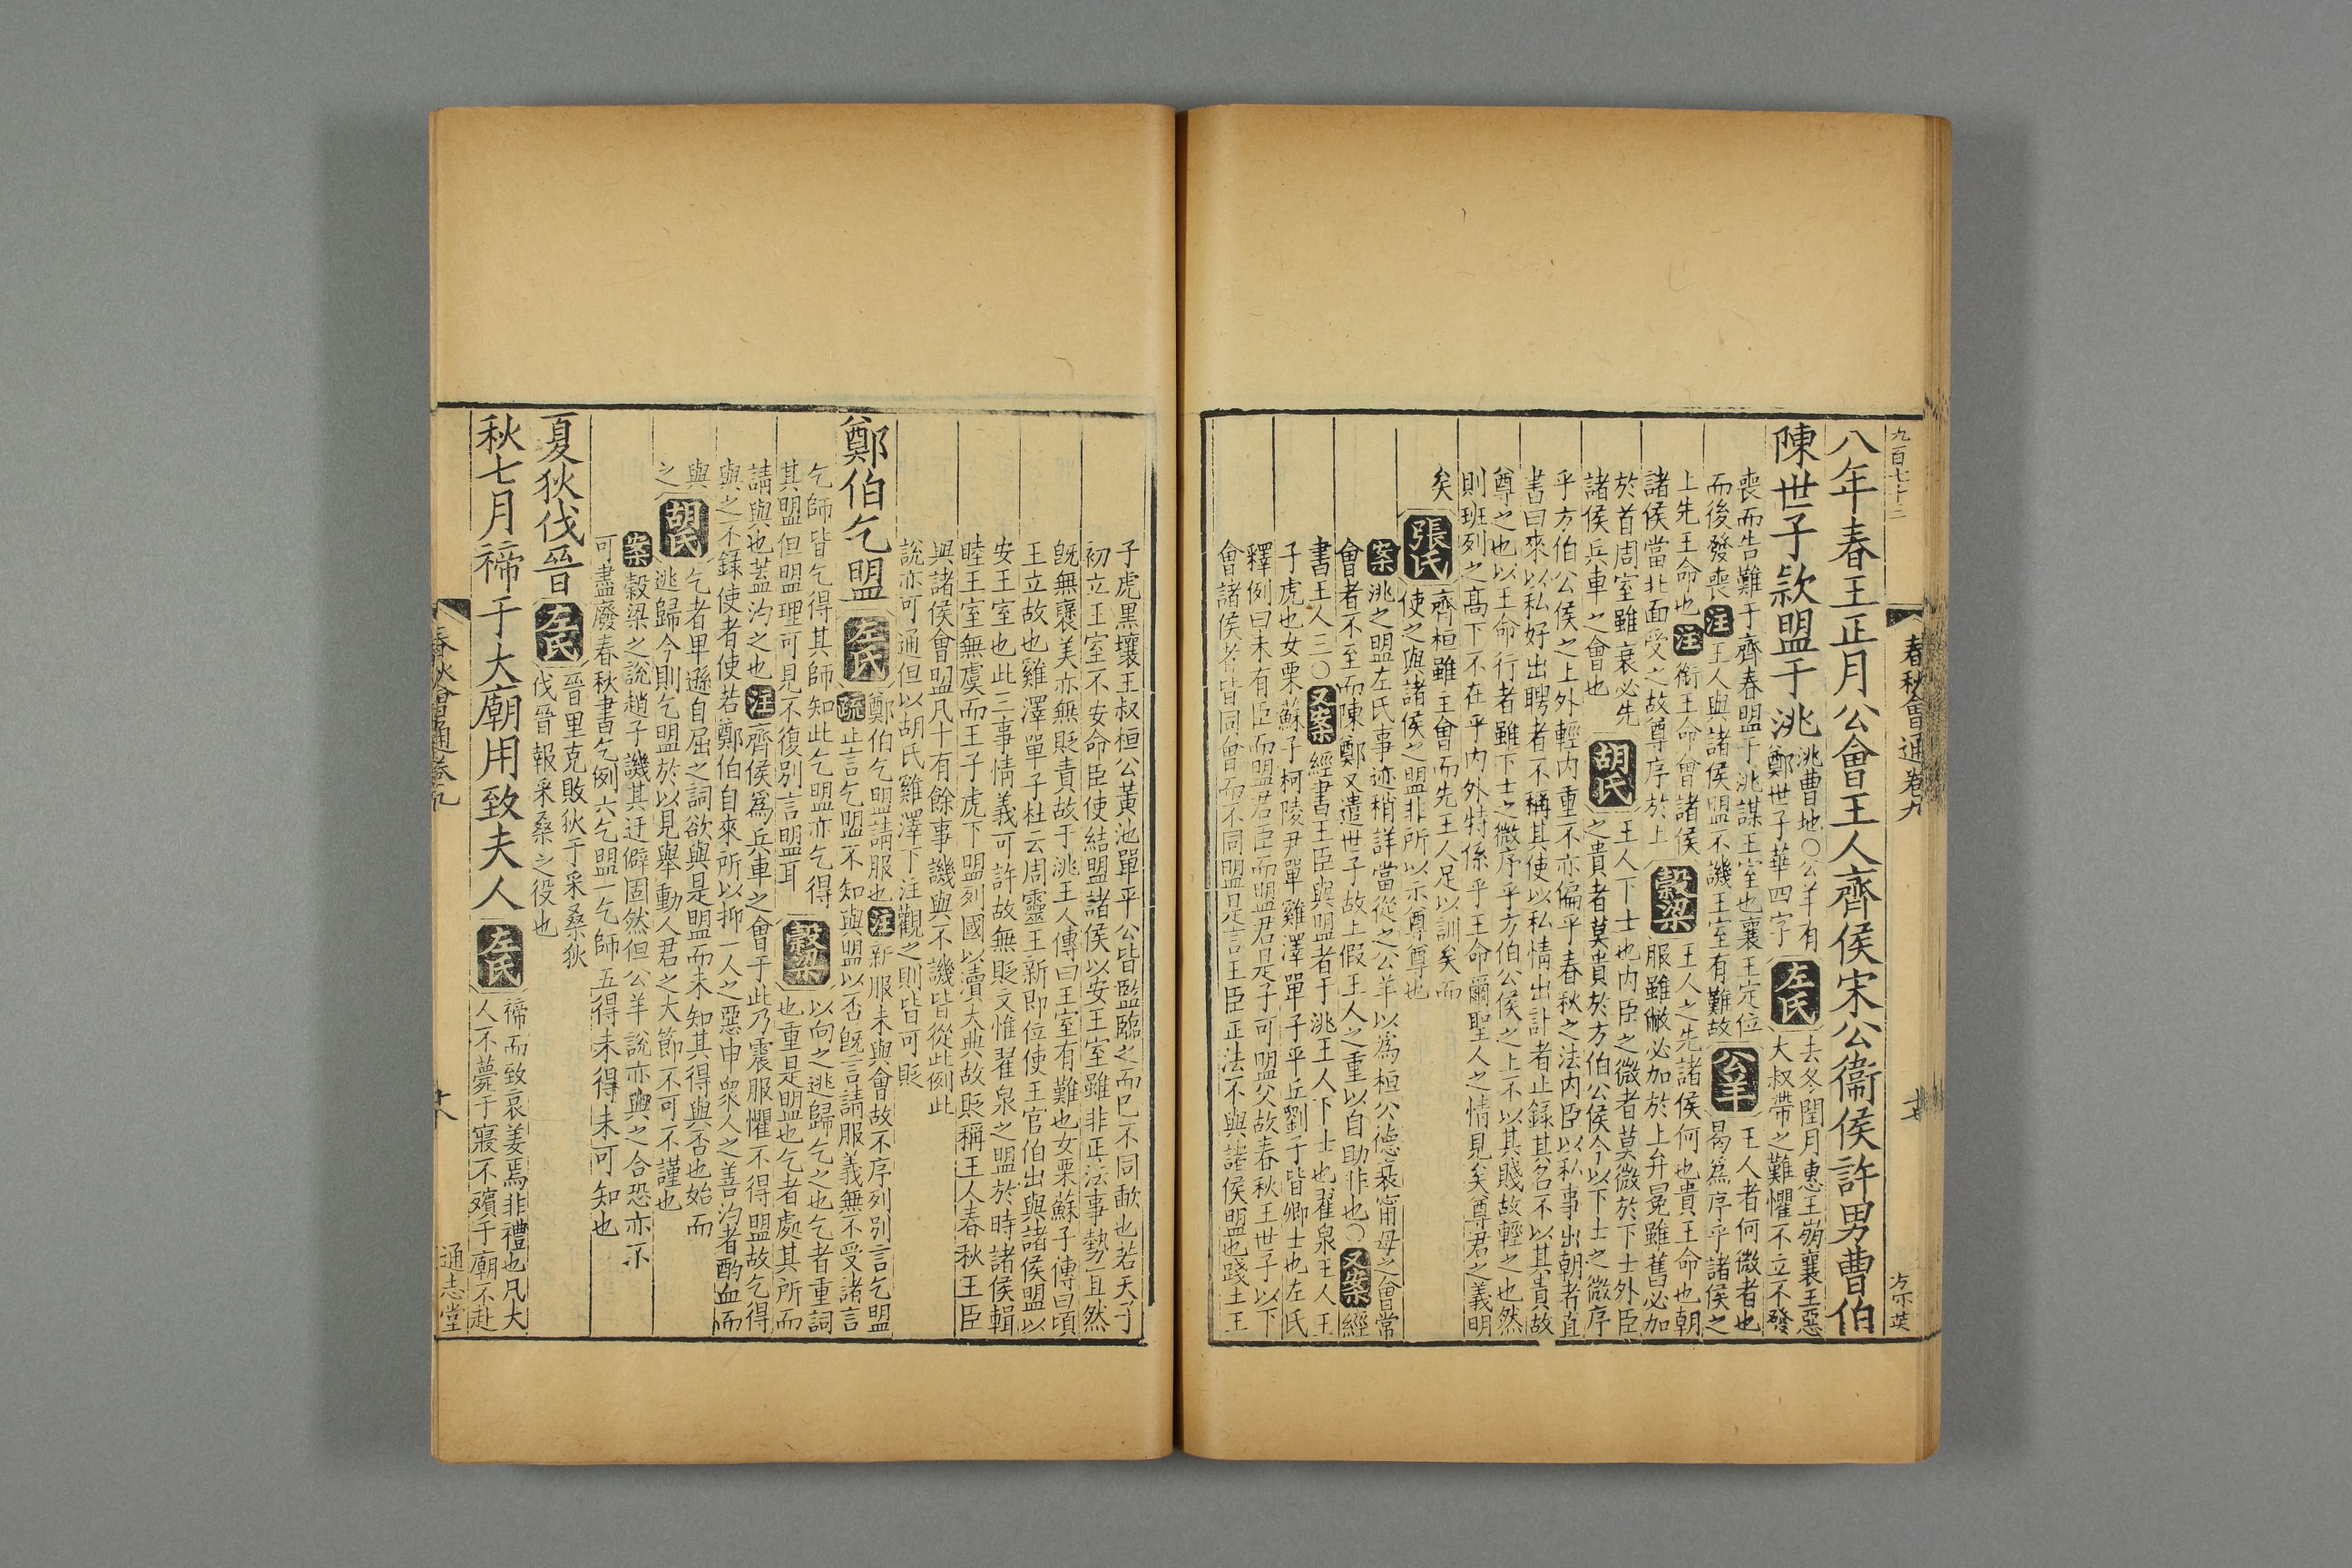 九百七十二
春秋會通卷九
八年春王正月公會王人齊侯宋公衞侯許男曹伯
陳世子款盟于洮
洮曹地〇公羊有
鄭世子華四字
左氏
去冬閏月惠王崩襄王惡
大叔帶之難懼不立不發
喪而告難于齊春盟于洮謀王室也襄王定位
而後發喪注王人與諸侯盟不譏王室有難故
公羊
王人者何微者也
曷為序乎諸侯之
上先王命也注銜王命會諸侯
諸侯當北面受之故尊序於上
穀梁
王人之先諸侯何也貴王命也朝
服雖敝必加於上弁冕雖舊必加
於首周室雖衰必先
諸侯兵車之會也
胡氏
王人下士也内臣之微者莫微於下士外臣
之貴者莫貴於方伯公侯今以下士之微序
乎方伯公侯之上外輕内重不亦偏乎春秋之法内臣以私事出朝者直
書曰來以私好出聘者不稱其使以私情出計者止録其名不以其貴故
尊之也以王命行者雖下士之微序乎方伯公侯之上不以其賤故輕之也然
則班列之髙下不在乎内外特係乎王命爾聖人之情見矣尊君之義明
矣
張氏
齊桓雖主會而先王人足以訓矣而
使之與諸侯之盟非所以示尊尊也
案洮之盟左氏事迹稍詳當從之公羊以為桓公德衰甯母之會常
會者不至而陳鄭又遣世子故上假王人之重以自助非也〇又案經
書王人三〇又案經書王臣與盟者于洮王人下士也翟泉王人王
子虎也女栗蘇子柯陵尹單雞澤單子平丘劉子皆卿士也左氏
釋例曰未有臣而盟君臣而盟君是子可盟父故春秋王世子以下
會諸侯者皆同會而不同盟是言王臣正法不與諸侯盟也踐土王
子虎黒壤王叔桓公黃池單平公皆監臨之而巳不同歃也若天子
初立王室不安命臣使結盟諸侯以安王室雖非正法事勢宜然
旣無襃美亦無貶責故于洮王人傳曰王室有難也女栗蘇子傳曰頃
王立故也雞澤單子杜云周靈王新即位使王官伯出與諸侯盟以
安王室也此三事情義可許故無貶文惟翟泉之盟於時諸侯輯
睦王室無虞而王子虎下盟列國以瀆大典故貶稱王人春秋王臣
與諸侯會盟凡十有餘事譏與不譏皆從此例此
說亦可通但以胡氏雞澤下注觀之則皆可貶
鄭伯乞盟
左氏
鄭伯乞盟請服也注新服未與會故不序列別言乞盟
疏止言乞盟不知與盟以否旣言請服義無不受諸言
乞師皆乞得其師知此乞盟亦乞得
其盟但盟理可見不復別言盟耳
穀梁
以向之逃歸乞之也乞者重詞
也重是盟也乞者處其所而
請與也葢汋之也注齊侯為兵車之會于此乃震服懼不得盟故乞得
與之不録使者使若鄭伯自來所以抑一人之惡申衆人之善汋者酌血而
與
之
胡氏
乞者卑遜自屈之詞欲與是盟而未知其得與否也始而
逃歸今則乞盟於以見舉動人君之大節不可不謹也
案穀梁之說趙子譏其迂僻固然但公羊說亦與之合恐亦不
可盡廢春秋書乞例六乞盟一乞師五得未得未可知也
夏狄伐晉
左氏
晉里克敗狄于采桑狄
伐晉報采桑之役也
秋七月禘于大廟用致夫人
左氏
禘而致哀姜焉非禮也凡夫
人不薨于寢不殯于廟不赴
春秋會通卷九
通志堂